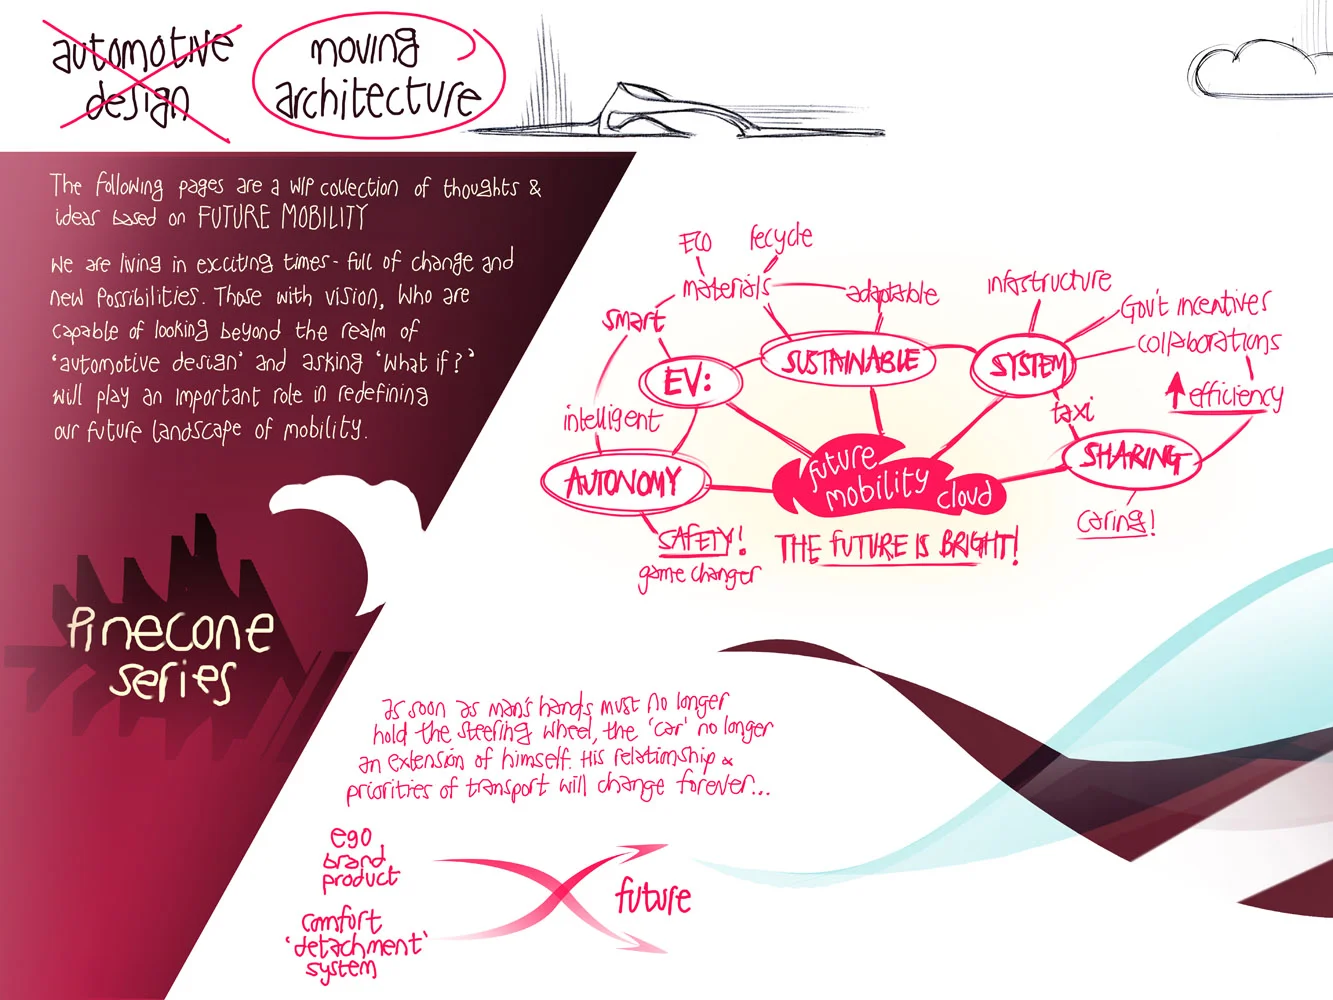 automotive
design
moving
architecture
The following pages are a WIP collection of thoughts &
ideas based on FUTURE MOBILITY
We are living in exciting times - full of change and
new possibilities. Those with vision, who are
capable of looking beyond the realm of
'automotive design' and asking 'What if?'
will play an important role in redefining
our future landscape of mobility.
Pinecone
series
Eco
recycle
materials
adaptable
smart
SUSTAINABLE
EV:
intelligent
AUTONOMY
SAFETY!
game changer
infrastructure
Gov't incentives
collaborations
SYSTEM
efficiency
taxi
SHARING
caring!
future
mobility
cloud
THE FUTURE IS BRIGHT!
as soon as man's hands must no longer
hold the steering wheel, the 'car' no longer
an extension of himself. His relationship &
priorities of transport will change forever...
ego
brand
product
comfort
'detachment'
system
future